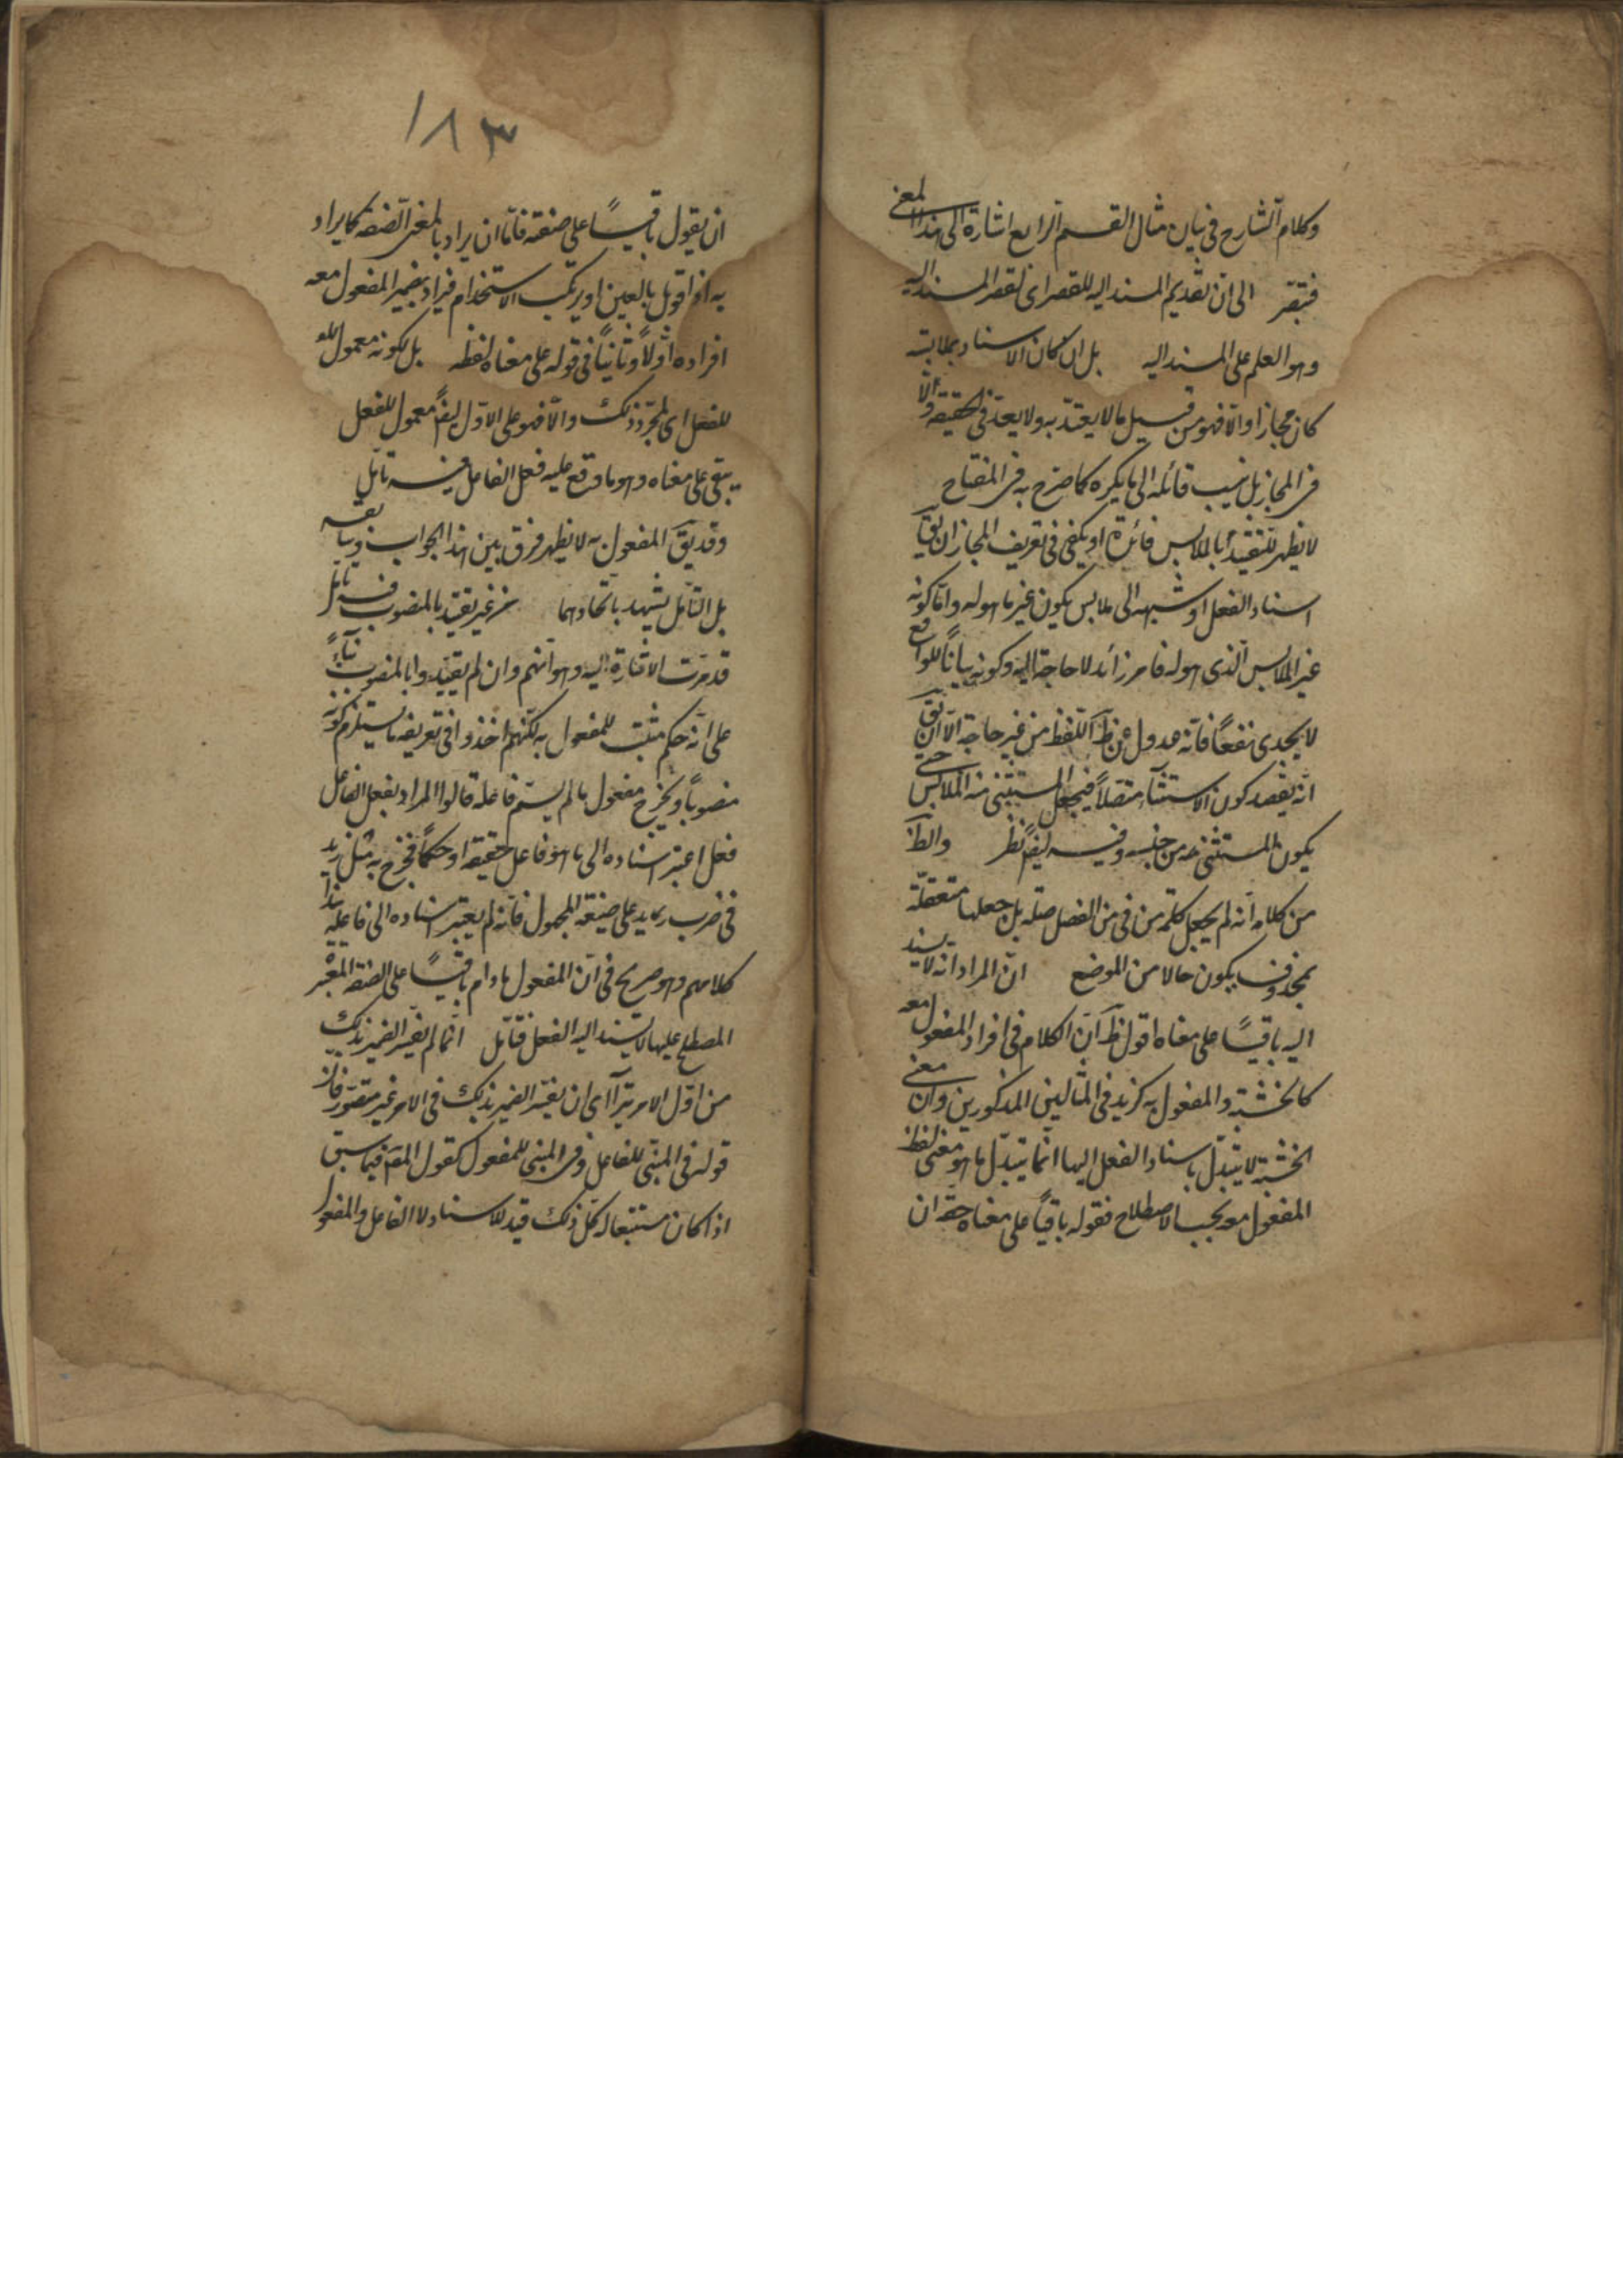 وكلام الشارح فى بيان مثال القسم الرابع اشارة الى هذا المعنى
فتبصّر الى ان تقديم المسند اليه للقصر اى لقصر المسند اليه
وهو العلم على المسند اليه بل ان كان الاسناد بملابسة
كان مجازا والّا فهو من قبيل ما لا يعتدّ به ولا يعدّ فى الحقيقة ولا
فى المجاز بل ينسب قائله الى ما يكره كما صرّح به فى المفتاح
لا يظهر للتقييد بالملابس فائدة اذ يكفى فى تعريف المجاز ان يقٓ
اسناد الفعل او شبهه الى ملابس يكون غير ما هو له وامّا كونه
غير الملابس الّذى هو له فامر زائد لا حاجة اليه وكونه بياناً للواقع
لا يجدى نفعاً فانّه عدول عن ظٓ اللفظ من غير حاجة الّا ان يقٓ
انّه يقصد كون الاستثناء متصلاً فيجعل المستثنى منه الملابس حتى
يكون المستثنى منه من جنسه وفيه ايضً نظر والظٓ
من كلامه انّه لم يجعل كلمة من فى من الفضل صلة بل جعلها متعلقة
بمحذوف يكون حالا من الموضع انّ المراد انّه لا يسند
اليه باقياً على معناه اقول ظٓ انّ الكلام فى افراد المفعول معه
كالخشبة والمفعول به كزيد فى المثالين المذكورين وانّ معنى
الخشبة لا يتبدّل باسناد الفعل اليها انّما يتبدّل ما هو معنى لفظ
المفعول معه بحسب الاصطلاح فقوله باقياً على معناه حقّه ان
١٨٣
ان يقول باقياً على صفته فامّا ان يراد بالمعنى الصّفة كما يراد
به اذا قوبل بالعين او يرتكب الاستخدام فيراد بضمير المفعول معه
افراده اوّلاً وثانياً فى قوله على معناه لفظه بل لكونه معمول
للفعل اى لمجرّد ذلك والّا فهو على الاوّل ايضً معمول للفعل
يبقى على معناه وهو ما وقع عليه فعل الفاعل فيه تامّل
وقد يقٓ المفعول به لا يظهر فرق بين هذا الجواب وسابقه
بل التأمّل يشهد باتّحادهما من غير تقييد بالمنصوب فيه تامّل
قد مرّت الاشارة اليه وهو انّهم وان لم يقيّدوا بالمنصوب بناءً
على انّه حكم مثبت للمفعول به لكنّهم اخذوا فى تعريفه ما يستلزم كونه
منصوباً ويخرج مفعول ما لم يسمّ فاعله قالوا المراد بفعل الفاعل
فعل اعتبر اسناده الى ما هو فاعل حقيقة او حكماً فخرج به مثل زيد
فى ضرب زيد على صيغة المجهول فانّه لم يعتبر اسناده الى فاعله هذا
كلامهم وهو صريح فى انّ المفعول ما دام باقياً على الصفة المعتبر
المصطلح عليها لا يسند اليه الفعل فتامّل انّما لم يفسّر الضمير بذلك
من اوّل الامر اى ان تفسّر الضمير بذلك فى الامر غير متصوّر فانّ
قوله فى المبنى للفاعل وفى المبنى للمفعول كقول المصٓ فيما سبق
اذا كان مستتبعا لكلّ ذلك قيد للاسناد لا الفاعل والمفعول